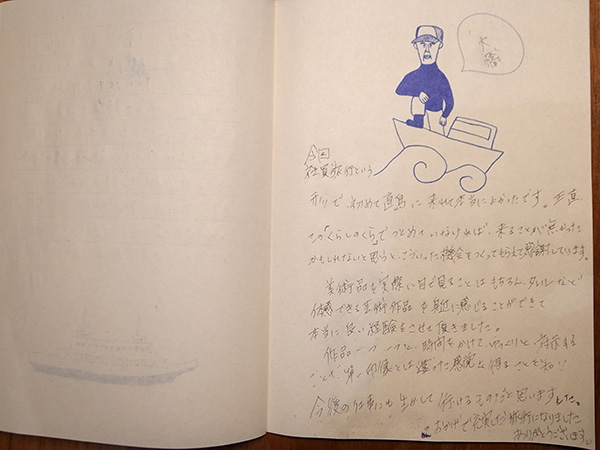 今回
社員旅行という
形で、初めて直島に来れて本当によかったです。正直、
この「くらしのくら」でつとめていなければ、来ることが無かった
かもしれないと思うと、こういった機会をつくってもらえて感謝しています。
美術品を実際に目で見ることはもちろん、など
体感できる美術作品を身近に感じることができて
本当に良い経験をさせて頂きました。
作品一つ一つに時間をかけて、ゆっくりと
ことが第一印象とは違った感覚を得ることができ
今後の仕事にも生かして行けるものだと思いました。
おかげで充実した旅行になりました
ありがとうございます。